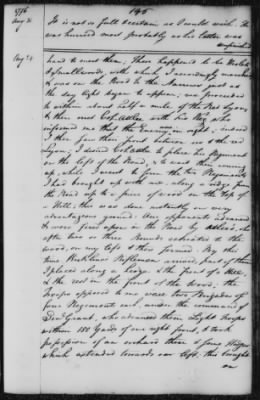 145
1776
Aug 31
It is not so full & certain as I would wish. It
was hurried most probably as his letter was
unfinished
Aug 29
hand to meet them. There happened to be Haslet
& Smallwoods, with which I accordingly marched
& was on the Road to the Narrows just as
the day light began to appear, we proceeded
to within about half a mile of the Red Lyon,
& there met Col. Atlee with his Reg. who
informed me that the Enemy in sight; indeed
I then saw their front between us & the red
Lyon; I desired Col. Atlee to place his Regiment
on the left of the Road, & to wait their coming
up, while I went to form the two Regiments
I had brought up with me, along a ridge from
the Road up to a piece of wood on the top of
a Hill; this was done instantly on very
advantageous ground. Our opponents advanced
& were fired upon in the Road by Atlee's, who
after two or three Rounds retreated to the
wood, on my left & there formed. By this
time Kichline's Riflemen arrived, part of them
I placed along a hedge & the front of a Hill,
& the rest in the front of the wood; the
troops opposed to me were two Brigades of
four Regiments each, under the command of
Genl Grant, who advanced their Light Troops
within 150 Yards of our right front, & took
possession of an orchard there & some Hedges
which extended towards our left; this brought
on